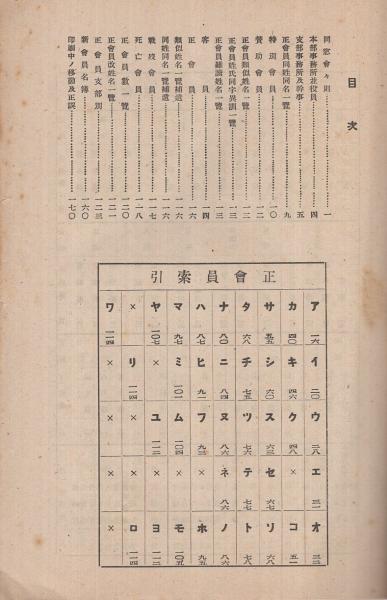 目次
同窓會々則…………一
本部事務所並役員…………四
支部事務所及幹事…………五
正會員同姓同名一覽…………九
特別會員…………一〇
贊助會員…………一二
正會員類似姓名一覽…………一二
正會員姓氏同字異訓一覽…………一三
正會員難讀姓名一覽…………一三
客員…………一四
正會員…………一六
類似姓名一覽補遺…………一一六
同姓同名一覽補遺…………一一六
戰歿會員…………一一七
死亡會員…………一一八
正會員數一覽…………一二〇
正會員改姓名一覽…………一二一
正會員支部別…………一二三
新會員名簿…………一六〇
印刷中ノ移動及正誤…………一七〇
正會員索引
ア 一六 イ 二〇 ウ 二八 エ 三一 オ 三三
カ 四〇 キ 四六 ク 四八 × コ 五一
サ 五五 シ 六〇 ス 六三 セ 六七 ソ 六八
タ 六八 チ 七五 ツ 七六 テ 七七 ト 七七
ナ 八〇 ニ 八四 ヌ 八六 ネ 八六 ノ 八六
ハ 八七 ヒ 九一 フ 九三 × ホ 九五
マ 九七 ミ 一〇一 ム 一〇四 × モ 一〇五
ヤ 一〇七 × ユ 一一二 × ヨ 一一二
× リ 一一四 × × ロ 一一四
ワ 一一四 × × × ×